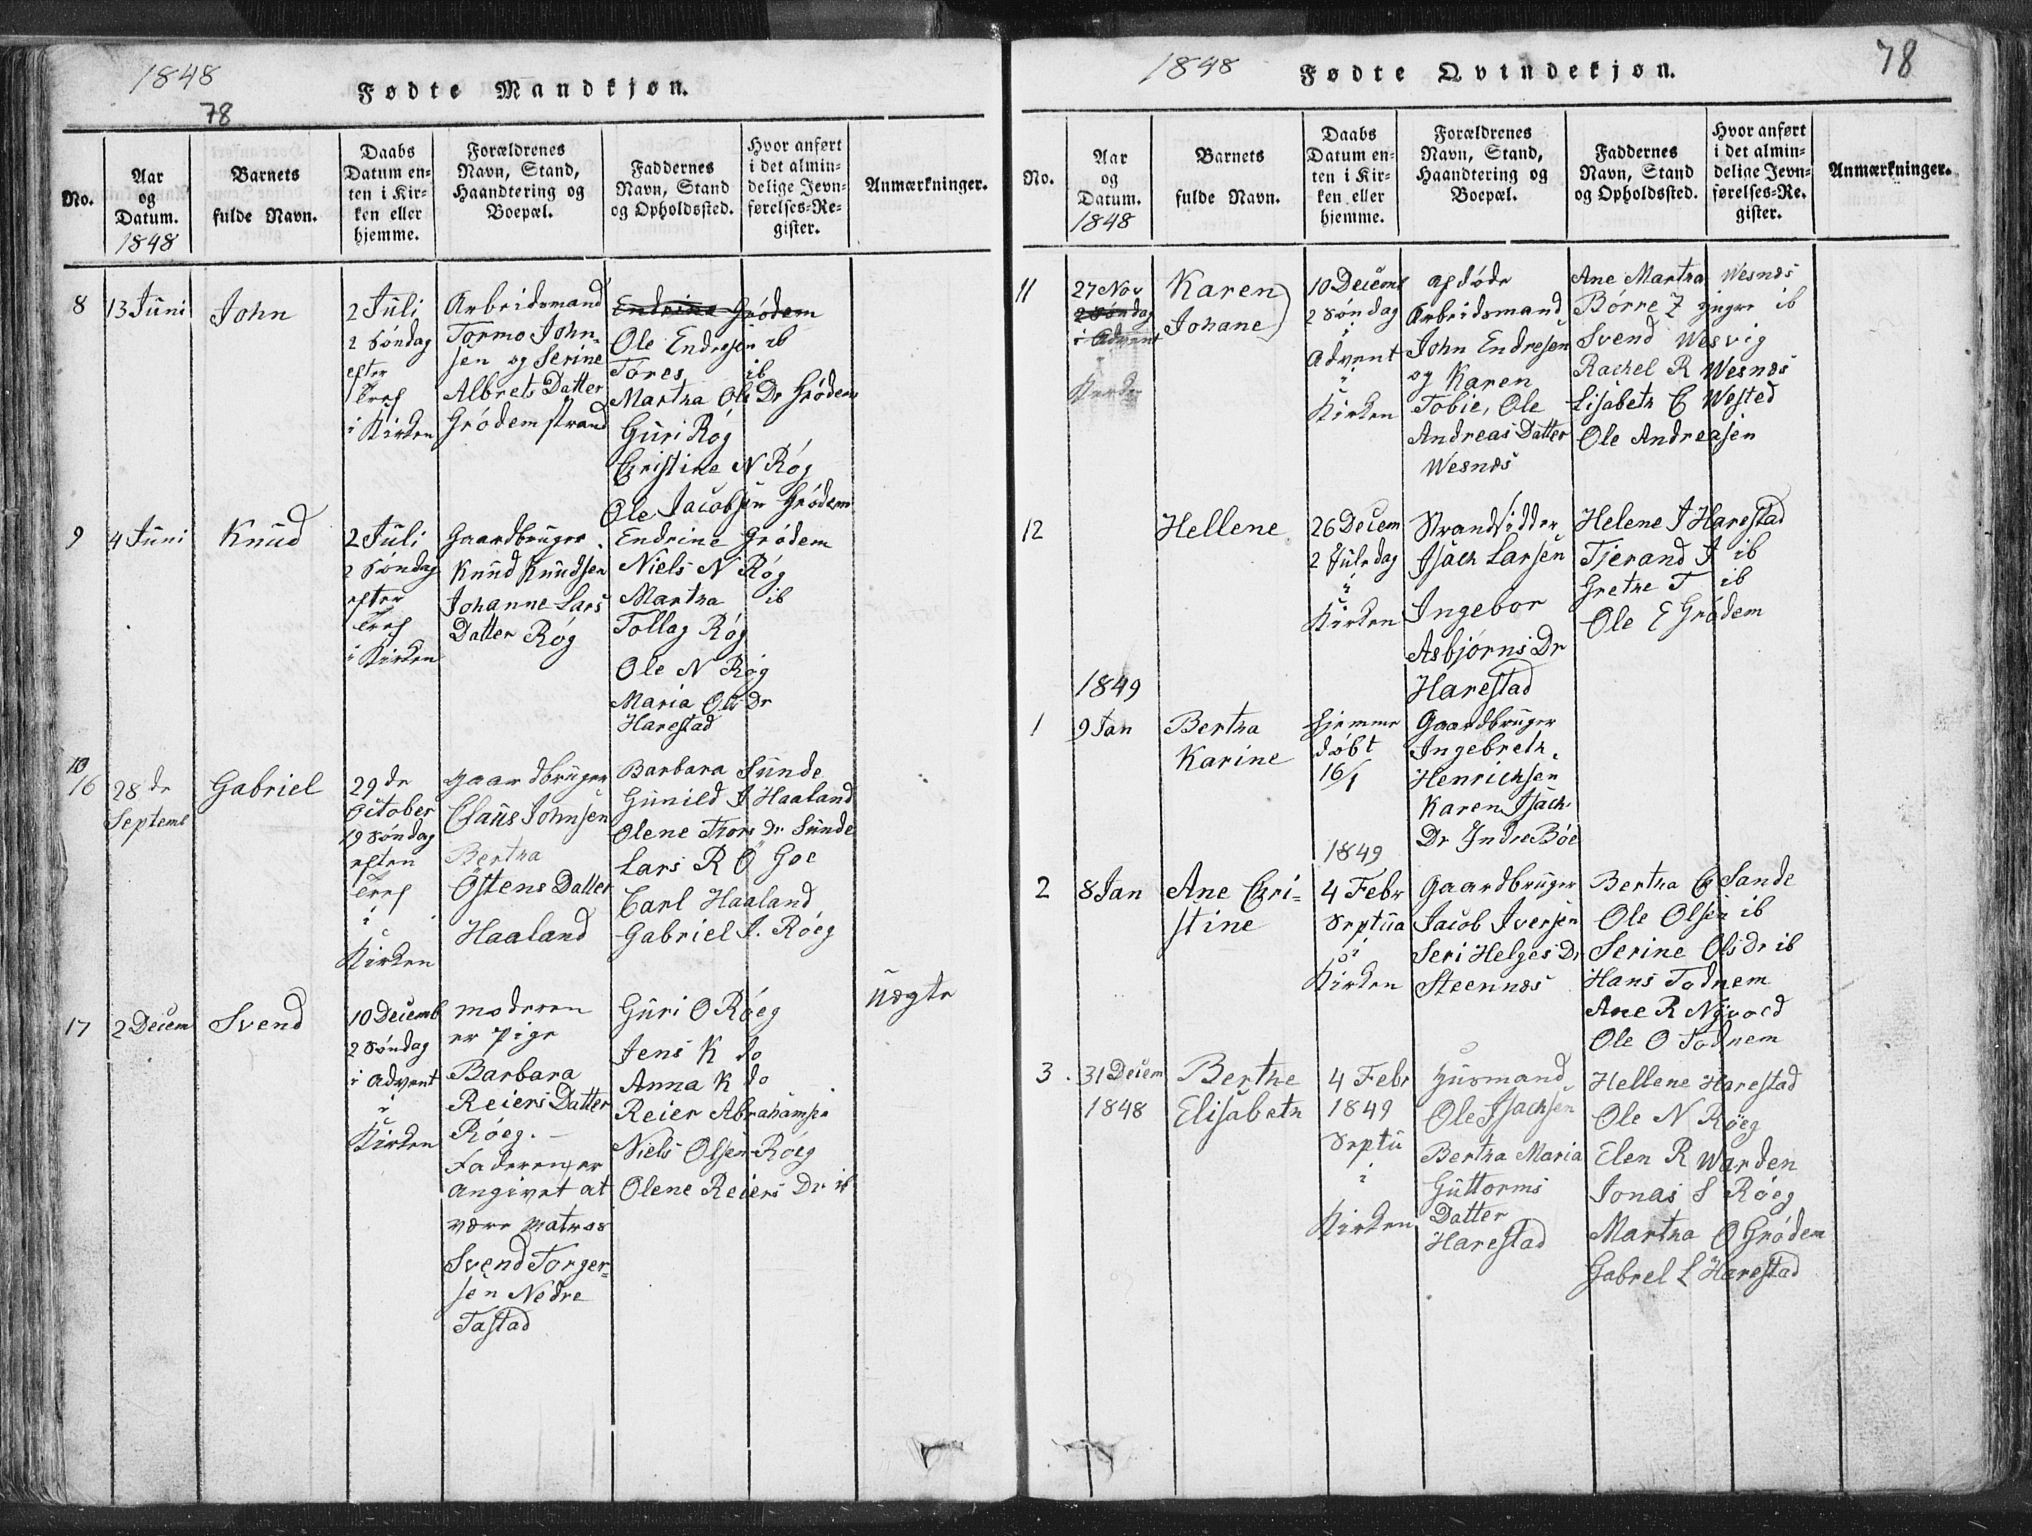 1848
78
Fødte Mandkjøn.
No.
Aar
og
Datum.
1848
Barnets
fulde Navn.
Daabs
Datum en-
ten i Kir-
ken eller
hjemme.
Forældrenes
Navn, Stand,
Haandtering og
Boepæl.
Faddernes
Navn, Stand
og Opholdssted.
Hvor anført
i det almin-
delige Jevn-
førelses-Re-
gister.
Anmærkninger.
8
13 Juni
John
2 Juli
2 Søndag
efter
Tref
i Kirken
Arbeidsmand
Tormo John-
sen og Serine
Albrets Datter
Grødemstrand
Endrine Grødem
Ole Endresen ib
Tores ib
Martha Ols Dr Grødem
Guri Røg
Christine N Røg
Ole Jacobsen Grødem
9
4 Juni
Knud
2 Juli
2 Søndag
efter
Tref
i Kirken
Gaardbruger
Knud Knudsen
Johanne Lars
Datter Røg
Endrine Grødem
Niels N Røg
Martha ib
Tollag Røg
Ole N Røg
Maria Ols Dr
Harestad
16
28 de
Septemb
Gabriel
29 de
October
19 Søndag
efter
Tref
i
Kirken
Gaardbruger
Claus Johnsen
Bertha
Østens Datter
Haaland
Barbara Sunde
Gunild J Haaland
Olene Thors Dr Sunde
Lars R Goe
Carl Haaland
Gabriel J. Røeg
17
2 Decem
Svend
10 Decemb
2 Søndag
i Advent
i
Kirken
moderen
er Pige
Barbara
Reiers Datter
Røeg.
Faderen er
angivet at
være Matros
Svend Torger-
sen Nedre
Tastad
Guri O Røeg
Jens K do
Anna K do
Reier Abrahamsen
Niels Olsen Røeg
Olene Reiers Dr ib
Uægte
1848
Fødte Qvindekjøn.
78
No.
Aar
og
Datum.
1848
Barnets
fulde Navn.
Daabs
Datum en-
ten i Kir-
ken eller
hjemme.
Forældrenes
Navn, Stand,
Haandtering og
Boepæl.
Faddernes
Navn, Stand
og Opholdssted.
Hvor anført
i det almin-
delige Jevn-
førelses-Re-
gister.
Anmærkninger.
11
27 Nov
2 Søndag
i Advent
Karen
Johane
10 Decemb
2 Søndag
i
Advent
i
Kirken
afdøde
Arbeidsmand
John Endresen
og Karen
Tobie, Ole
Andreas Datter
Wesnæs
Ane Martha Wesnæs
Børre Z ib
Svend Wesvig
Rachel R Wesnæs
Lisabeth C Wested
Ole Andreasen
12
Hellene
26 Decem
2 Juledag
i
Kirken
Strandsidder
Isach Larsen
Ingebor
Asbjørns Dr
Harestad
Helene J Harestad
Tjerand J ib
Grethe T ib
Ole E Grødem
1849
1
9 Jan
Bertha
Karine
hjemme
døbt
16/1
Gaardbruger
Ingebreth
Henrichsen
Karen Isach
Dr Indre Bøe
2
8 Jan
Ane Chri-
stine
1849
4 Febr
Septua
i
Kirken
Gaardbruger
Jacob Iversen
Seri Helges Dr
Steennæs
Bertha C Sande
Ole Olsen ib
Serine Ols dr ib
Hans Todnem
Ane R Nyvold
Ole O Todnem
3
31 Decem
1848
Berthe
Elisabeth
4 Febr
1849
Septu
i
Kirken
Husmand
Ole Isachsen
Bertha Maria
Guttorms
Datter
Harestad
Hellene Harestad
Ole N Røeg
Elen R Warden
Jonas S Røeg
Martha O Grødem
Gabrel L Harestad